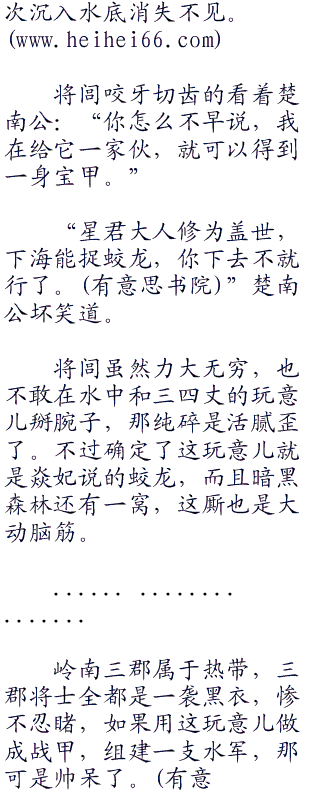 次沉入水底消失不见。
(www.heihei66.com)
将闾咬牙切齿的看着楚
南公：“你怎么不早说，我
在给它一家伙，就可以得到
一身宝甲。”
“星君大人修为盖世，
下海能捉蛟龙，你下去不就
行了。(有意思书院)”楚南
公坏笑道。
将闾虽然力大无穷，也
不敢在水中和三四丈的玩意
儿掰腕子，那纯碎是活腻歪
了。不过确定了这玩意儿就
是焱妃说的蛟龙，而且暗黑
森林还有一窝，这厮也是大
动脑筋。
...... ........
.......
岭南三郡属于热带，三
郡将士全都是一袭黑衣，惨
不忍睹，如果用这玩意儿做
成战甲，组建一支水军，那
可是帅呆了。(有意